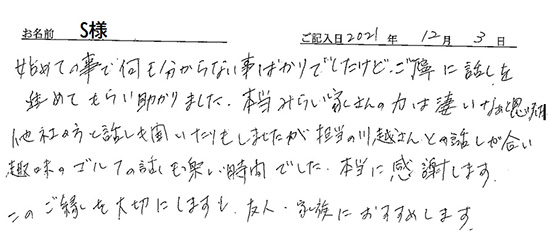 お名前 S様 ご記入日 2021年 12月 3日
始めての事で何も分からない事ばかりでしたけど、ご障に話しを
進めてもらい助かりました。本当みらい家さんの力は凄いなぁと思った
他社の方と話しも聞いたりもしましたが担当の川越さんとの話しが合い
趣味のゴルフの話しも楽しい時間でした。本当に感謝します。
このご縁を大切にしますし、友人・家族におすすめします